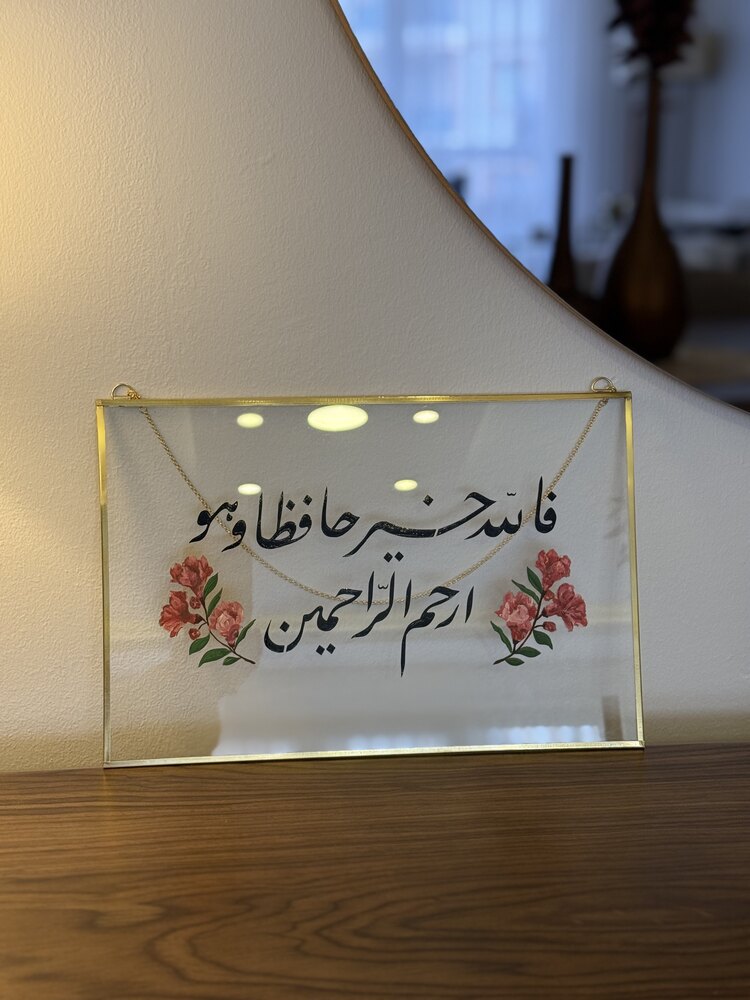 فالله خیر حافظا وهو
ارحم الرّاحمین